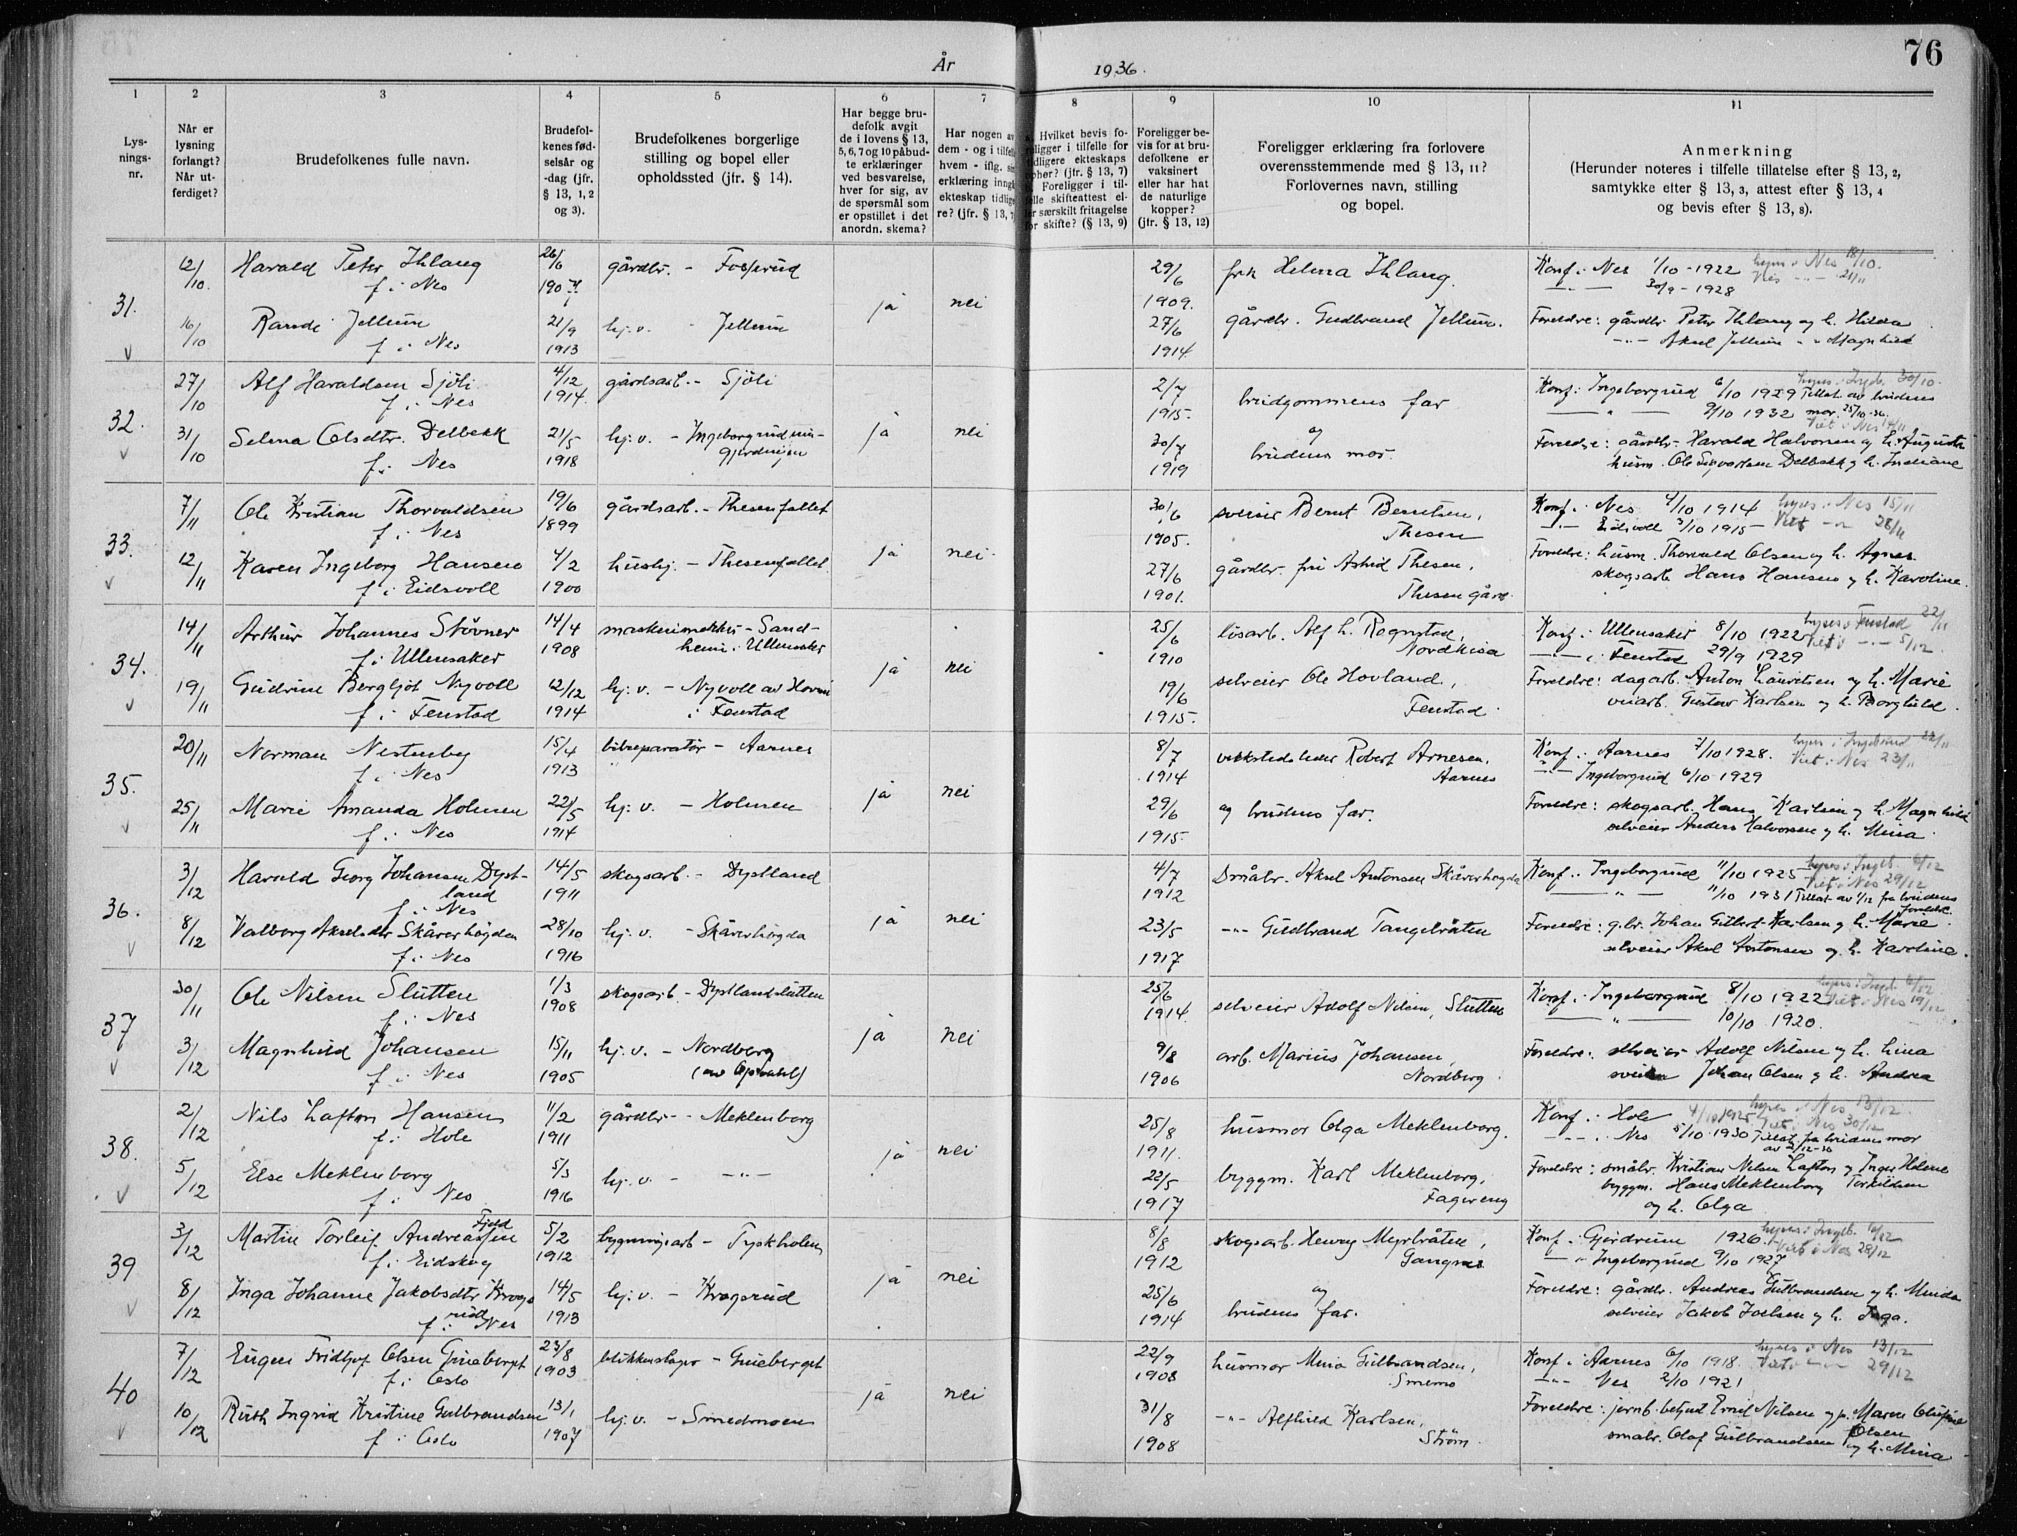 76
År 1936.
1 2 3 4 5 6 7 8 9 10 11
Lys-
nings-
nr.
Når er
lysning
forlangt?
Når ut-
ferdiget?
Brudefolkenes fulle navn.
Brudefol-
kenes fød-
selsår og
-dag (jfr.
§ 13, 1, 2
og 3).
Brudefolkenes borgerlige
stilling og bopel eller
opholdssted (jfr. § 14).
Har begge bru-
defolk avgit
de i lovens § 13,
5, 6, 7 og 10 påbud-
te erklæringer
ved besvarelse,
hver for sig, av
de spørsmål som
er opstillet i det
anordn. skema?
Har nogen av
dem - og i tilfelle
hvem - iflg. sin
erklæring inngk
ekteskap tidlige
re? (jfr. § 13, 7
Hvilket bevis fo-
religger i tilfelle for
tidligere ekteskaps
ophør? (jfr. § 13, 7)
Foreligger i til-
felle skifteattest el-
ler særskilt fritagelse
for skifte? (§ 13, 9)
Foreligger be-
vis for at bru-
defolkene er
vaksinert
eller har hat
de naturlige
kopper?
(jfr. § 13, 12)
Foreligger erklæring fra forlovere
overensstemmende med § 13, 11?
Forlovernes navn, stilling
og bopel.
Anmerkning
(Herunder noteres i tilfelle tillatelse efter § 13, 2,
samtykke efter § 13, 3, attest efter § 13, 4
og bevis efter § 13, 8).
31. 12/10 Harald Peter Ihlang 26/6 gårdbr. - Fosserud ja nei 29/6 frk Helma Ihlang. Konf. i Nes 1/10 - 1922 lyses i Nes 18/10.
f. i Nes 1907 1909. 30/9 - 1928 Viet 21/11
16/10 Randi Jellum 21/9 hj. v. Jellum 27/6 gårdbr. Gudbrand Jellum. Foreldre: gårdbr. Peter Ihlang og h. Hilda
f. i Nes 1913 1914 Aksel Jellum Magnhild
32. 27/10 Alf Haraldsen Sjøli 4/12 gårdsarb. - Sjøli ja nei 2/7 brudgommens far Konf. i Ingeborgrud 6/10 1929 Tillat. av brudens
f. i Nes 1914. 1915 og 9/10 1932 mor 25/10-36.
31/10 Selma Olsdtr. Delbekk 21/5 hj. v. - Ingeborgrud 30/7 brudens mor. Foreldre: gårdbr. Harald Halvorsen og h. Augusta
f. i Nes 1918 1919 husm. Ole Sevaldsen Delbekk og h. Indiane
33. 7/11 Ole Kristian Thorvaldsen 19/6 gårdsarb. - Thesenfallet ja nei 30/6 sveiser Bernt Berntsen, Konf. i Nes 4/10 1914 lyses i Nes 15/11
f. i Nes 1899 1905. Thesen Eidsvoll 3/10 1915 Viet 28/11
12/11 Karen Ingeborg Hansen 4/2 hushj. - Thesenfallet 27/6 gårdbr. fru Astrid Thesen, Foreldre: husm. Thorvald Olsen og h. Agnes
f. i Eidsvoll 1900 1901. Thesen gård. skogsarb Hans Hansen og h. Karoline.
34. 14/11 Arthur Johannes Støvner 14/4 - Sand- ja nei 25/6 løsarb. Alf L. Rognstad, Konf. i Ullensaker 8/10 1922 lyses i Fenstad 22/11
f. i Ullensaker 1908 heim i Ullensaker 1910 Nordkisa i Fenstad 29/9 1929 Viet 5/12
19/11 Gudrun Bergljot Nyvoll 12/12 hj. v. - Nyvoll av Horni 19/6 selveier Ole Hovland, Foreldre: dagarb. Anton Lauritsen og h. Marie
f. i Fenstad 1914 i Fenstad 1915. Fenstad veiarb. Gustav Karlsen og h. Borghild.
35. 20/11 Norman Nestenby 15/4 bilreparatør - Aarnes ja nei 8/7 verkstedsleder Robert Arnesen, Konf. i Aarnes 7/10 1928. lyses i 22/11
f. i Nes 1913 1914 Aarnes Ingeborgrud 6/10 1929 Viet i Nes 23/11
25/11 Marie Amanda Holmen 22/5 hj. v. - Holmen 29/6 og brudens far. Foreldre: skogsarb. Hans Karlsen og h. Magnhild
f. i Nes 1914 1915. selveier Anders Halvorsen og h. Mina.
36. 3/12 Harald Georg Johansen Dyst- 14/5 skogsarb. - Dystland ja nei 4/7 Småbr. Aksel Antonsen Skåverhøgda Konf. i Ingeborgrud 11/10 1925 lyses i Ingeb. 6/12
land f. i Nes 1911 1912 11/10 1931 Tillat. av 1/12 fra brudens foreldre. Viet i Nes 29/12
8/12 Valborg Akselsdtr Skåverhøgden 28/10 hj. v. - Skåverhøgda 23/5 Gudbrand Tangebråten Foreldre: g.br. Johan Gilbert Karlsen og h. Marie.
f. i Nes 1916 1917 selveier Aksel Antonsen og h. Karoline.
37 30/11 Ole Nilsen Slutten 1/3 skogsarb - Dystlandslutten ja nei 25/6 selveier Adolf Nilsen, Slutten Konf. i Ingeborgrud 8/10 1922 lyses i Ingeb. 6/12
f. i Nes 1908 1914. 10/10 1920. Viet i Nes 19/12
3/12 Magnhild Johansen 15/11 hj. v. - Nordberg 9/8 arb. Marius Johansen, Foreldre: selveier Adolf Nilsen og h. Lina
f. i Nes 1905 1906 Nordberg Johan Olsen og h. Andrea
38. 2/12 Nils Lafton Hansen 11/2 gårdbr - Meklenborg ja nei 25/8 husmor Olga Meklenborg. Konf. i Hole 4/10 1925 lyses i Nes 13/12
f. i Hole 1911 1911. Nes 5/10 1930 Tillat. fra brudens mor Viet i Nes 30/12
5/12 Else Meklenborg 5/3 hj. v. - 22/5 byggm. Karl Meklenborg, Foreldre: småbr. Kristian Nilsen Lafton og Inger Helene Torkildsen
f. i Nes 1916 1917 Fagereng byggm. Hans Meklenborg og h. Olga
39 3/12 Martin Torleif Andreassen Fjeld 5/2 bygningsarb - Tyskholen ja nei 8/8 skogsarb. Henry Myrbråten, Konf. i Gjerdrum 1926. lyses i Ingeb. 6/12
f. i Eidskog 1912 1912 Gangnes Ingeborgrud 9/10 1927 Viet i Nes 28/12
8/12 Inga Johanne Jakobsdtr Krogs- 14/5 hj. v. - Krogsrud 25/6 og Foreldre: gårdbr. Andreas Gulbrandsen og h. Minda
rud f. i Nes 1913 1914 brudens far. selveier Jakob Joelsen og h. Inga.
40 7/12 Eugen Fridtjof Olsen Grueberget 23/8 blikkenslager - Grueberget ja nei 22/9 husmor Mina Gulbrandsen, Konf. i Aarnes 6/10 1918. lyses i Nes 13/12
f. i Oslo 1903 1908 Nes 2/10 1921 Viet 29/12
10/12 Ruth Ingrid Kristine Gulbrandsen 13/1 hj. v. - Smedmoen 31/8 Alfhild Karlsen, Foreldre: jernb. betjent Emil Nilsen og Maren Olufine Olsen
f. i Oslo 1907 1908 Strøm. småbr. Olaf Gulbrandsen og h. Mina